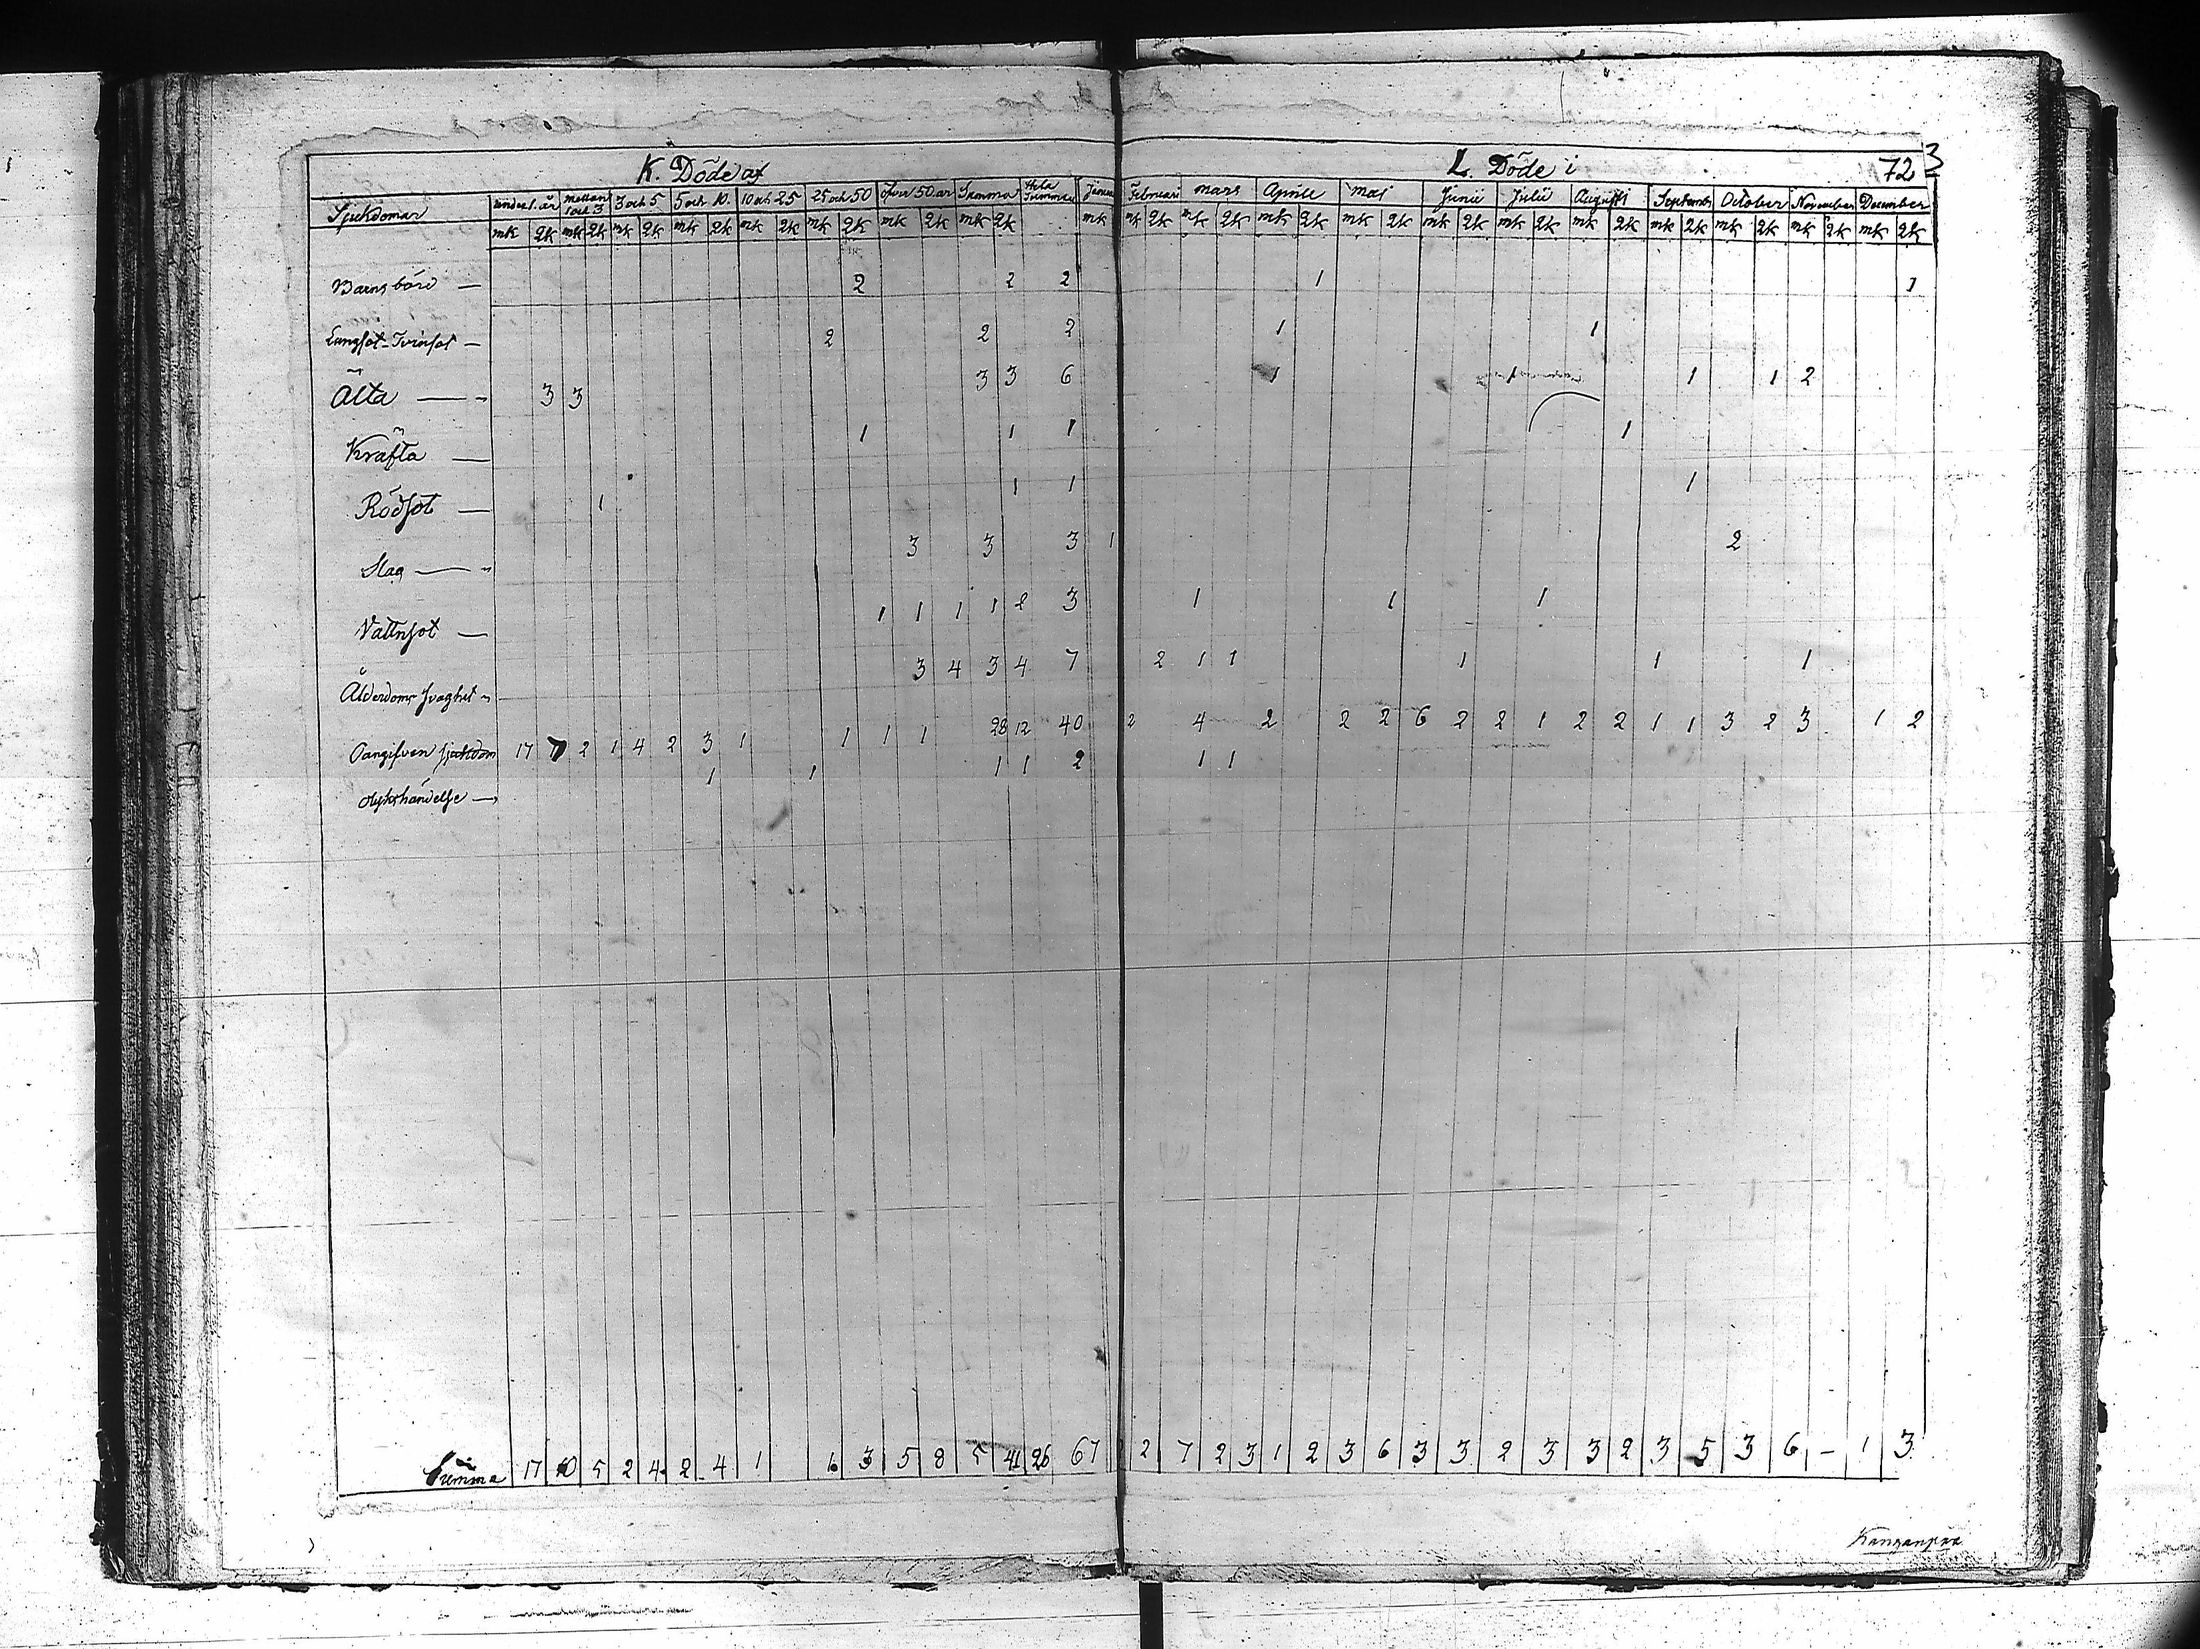 K. Döde af
L. Döde i 723
Sjukdomar under 1. år mellan 1 och 3 3 och 5 5 och 10. 10 och 25 25 och 50 öfver 50 år Summa Hela Summan Februari Mars Aprile Maj Junii Julii Augusti September October November December
mk qk mk qk mk qk mk qk mk qk mk qk mk qk mk qk mk mk qk mk qk mk qk mk qk mk qk mk qk mk qk mk qk mk qk mk qk mk qk
Barnsbörd — 2 2 2 1 1
Lungsot-Tvinsot — 2 2 2 1 1
Älta — 3 3 3 3 6 1 1 1 2
Kräfta — 1 1 1 1
Rödsot — 1 1 1 1
Slag — 3 3 3 1 2
Vattnsot — 1 1 1 1 2 3 1 1 1
Ålderdoms svaghet 3 4 3 4 7 2 1 1 1 1 1
Oangifven sjukdom 17 7 2 1 4 2 3 1 1 1 1 28 12 40 2 4 2 2 2 6 2 2 1 2 2 1 1 3 2 3 1 2
olykshändelse — 1 1 1 1 2 1 1
Summa 17 10 5 2 4 2 4 1 6 3 5 8 5 41 26 67 2 7 2 3 1 2 3 6 3 3 2 3 3 2 3 5 3 6 – 1 3
Kanganpää